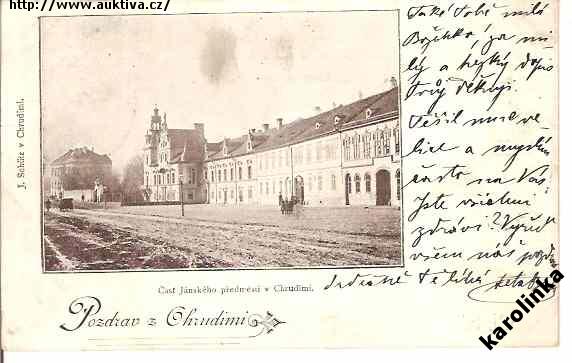 http://www.auktiva.cz/
J. Schütz v Chrudimi.
Také Tobě milá
Boženko, za mi-
lý a hezký dopis
Tvůj děkuji.
Těšil mne ve-
lice a myslím
často na Vás.
Jste všichni
zdrávi? Vyřiď
všem náš pozdrav
srdečně Tě líbá
Část Jánského předměstí v Chrudimi.
Pozdrav z Chrudimi
karolinka